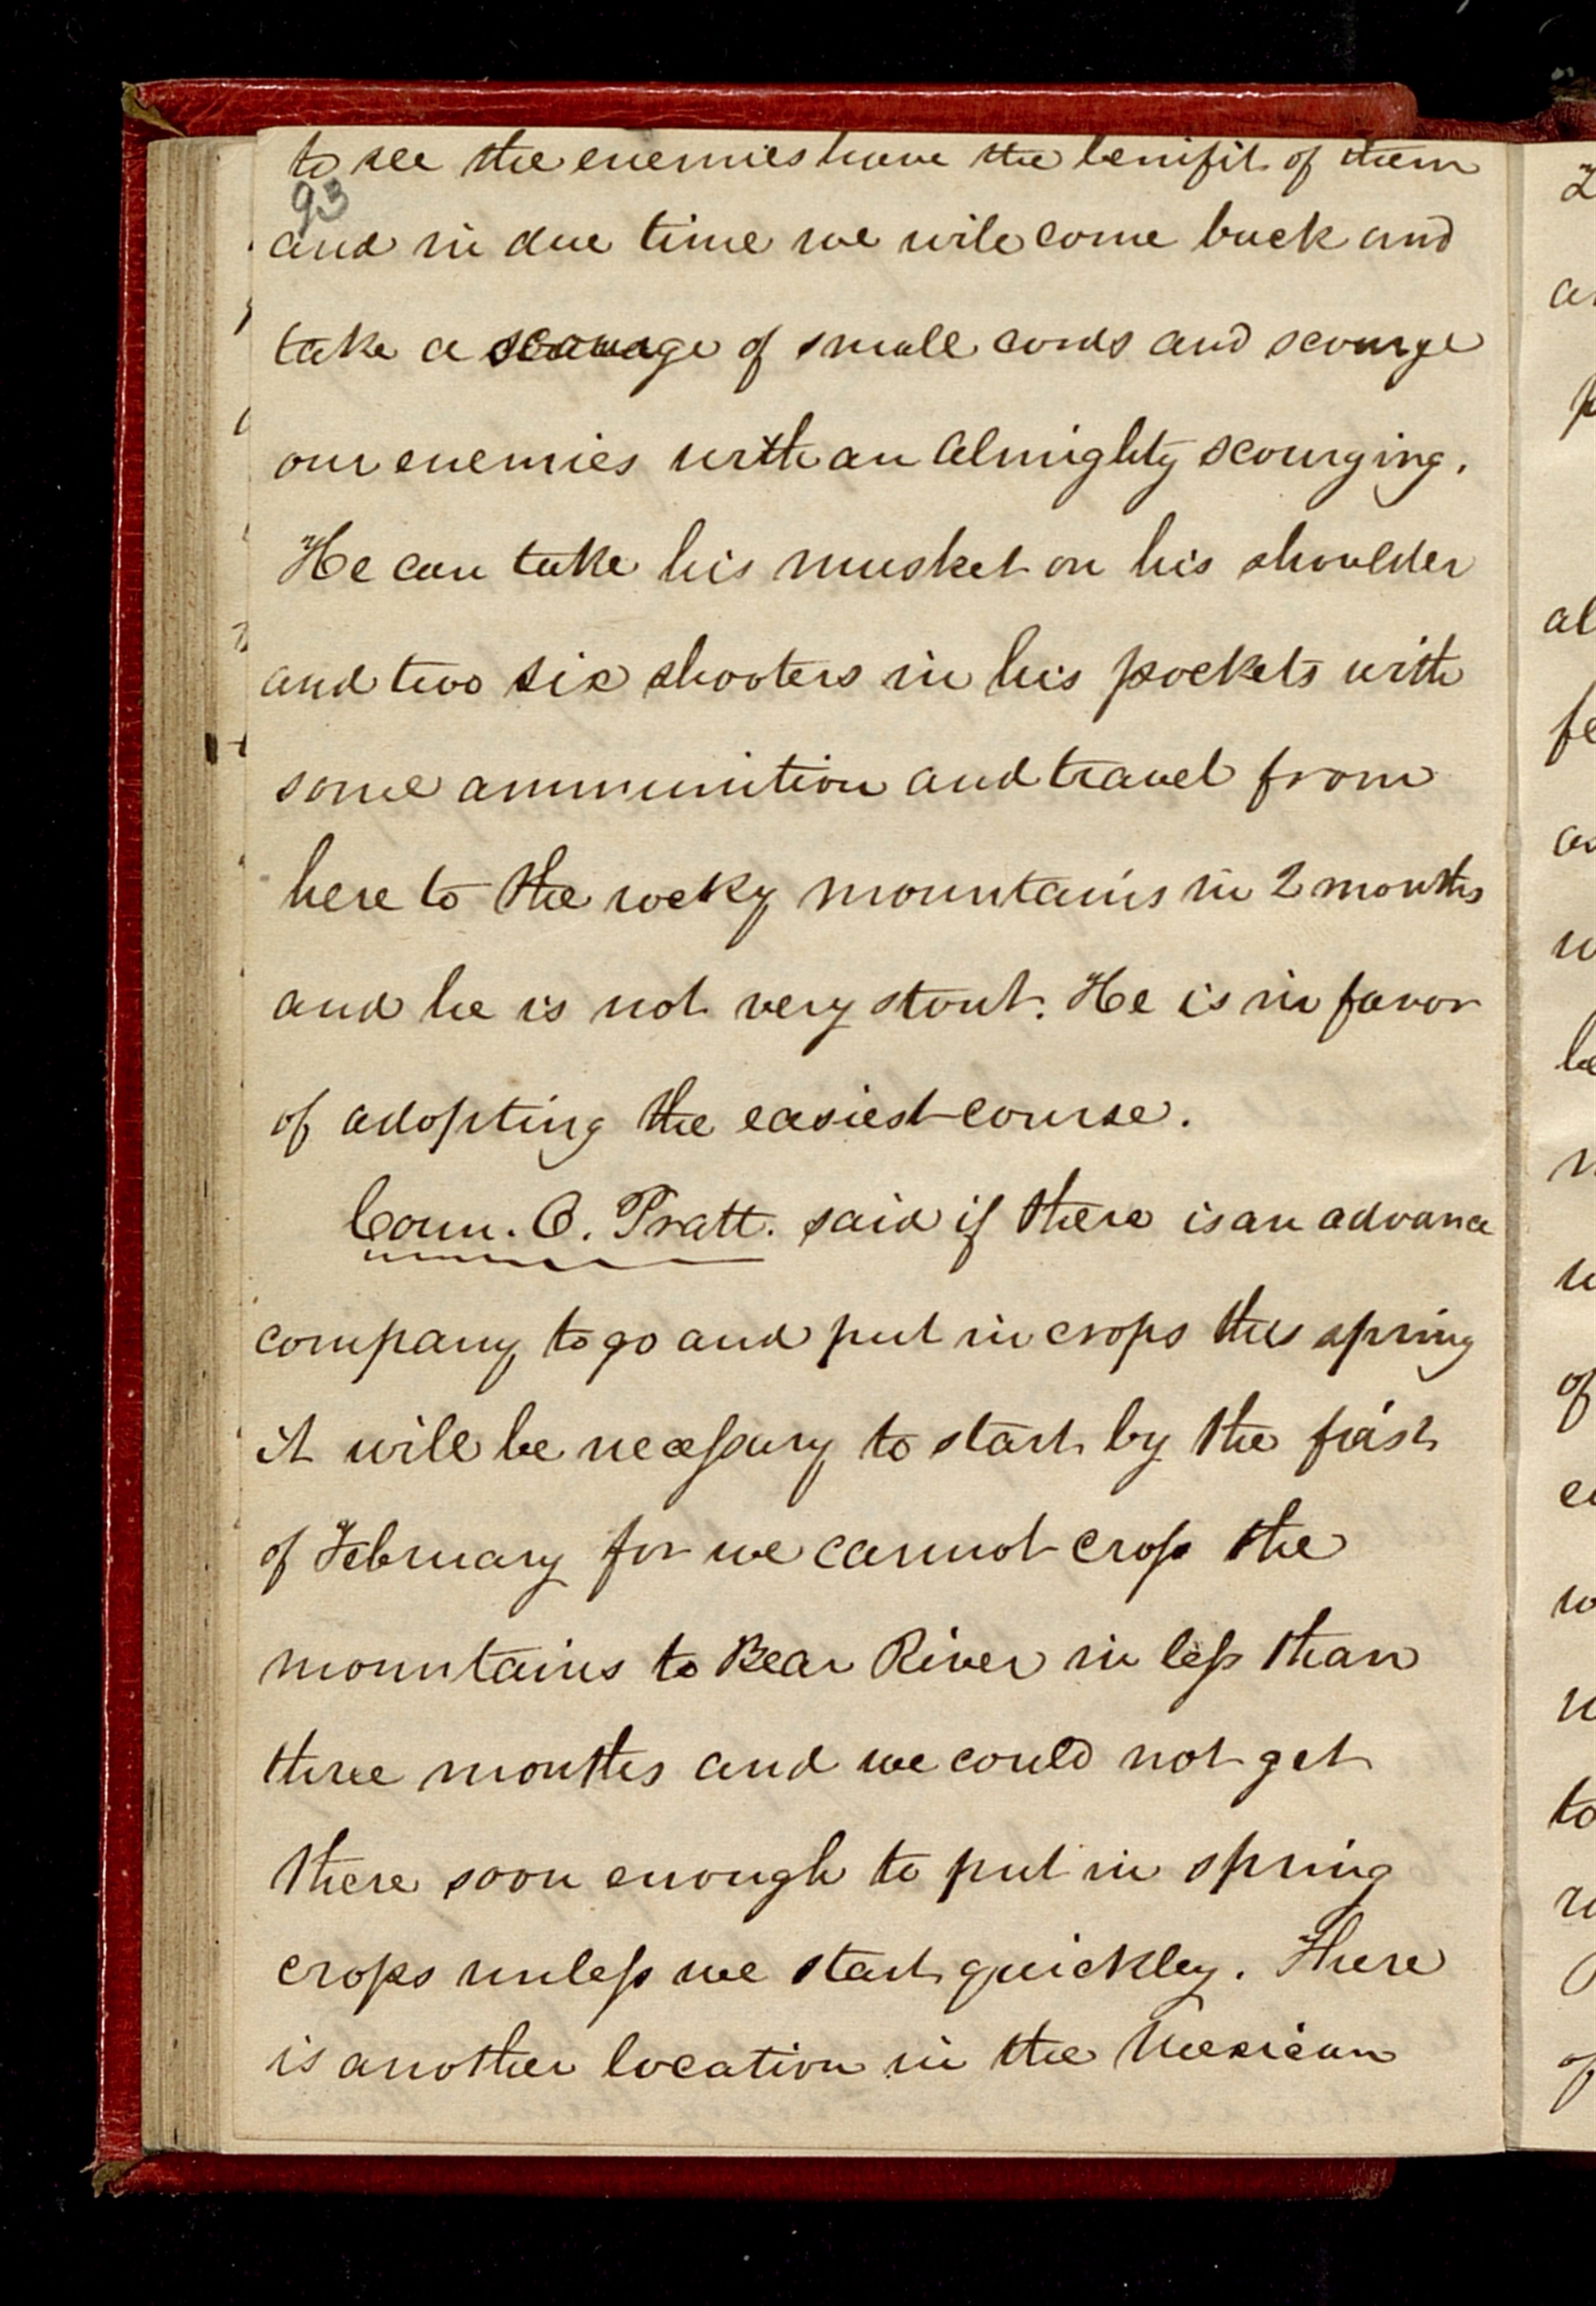 to see the enemies have the benifit of them
93
and in due time we will come back and
take a scourage of small cords and scourge
our enemies with an Almighty scourging.
He can take his musket on his shoulder
and two six shooters in his pockets with
some ammunition and travel from
here to the rocky mountains in 2 months
and he is not very stout. He is in favor
of adopting the easiest course.
Coun. O. Pratt. said if there is an advance
company to go and put in crops this spring
it will be necessary to start by the first
of February for we cannot cross the
mountains to Bear River in less than
three months and we could not get
there soon enough to put in spring
crops unless we start quickley. There
is another location in the Mexican